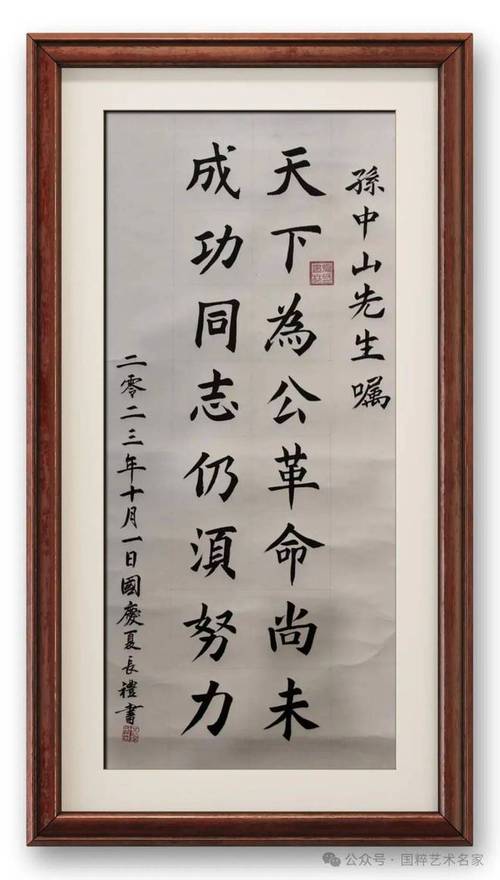 孫中山先生嘱
天下為公革命尚未
成功同志仍湏努力
二零二三年十月一日國慶夏長禮書
公众号·国粹艺术名家